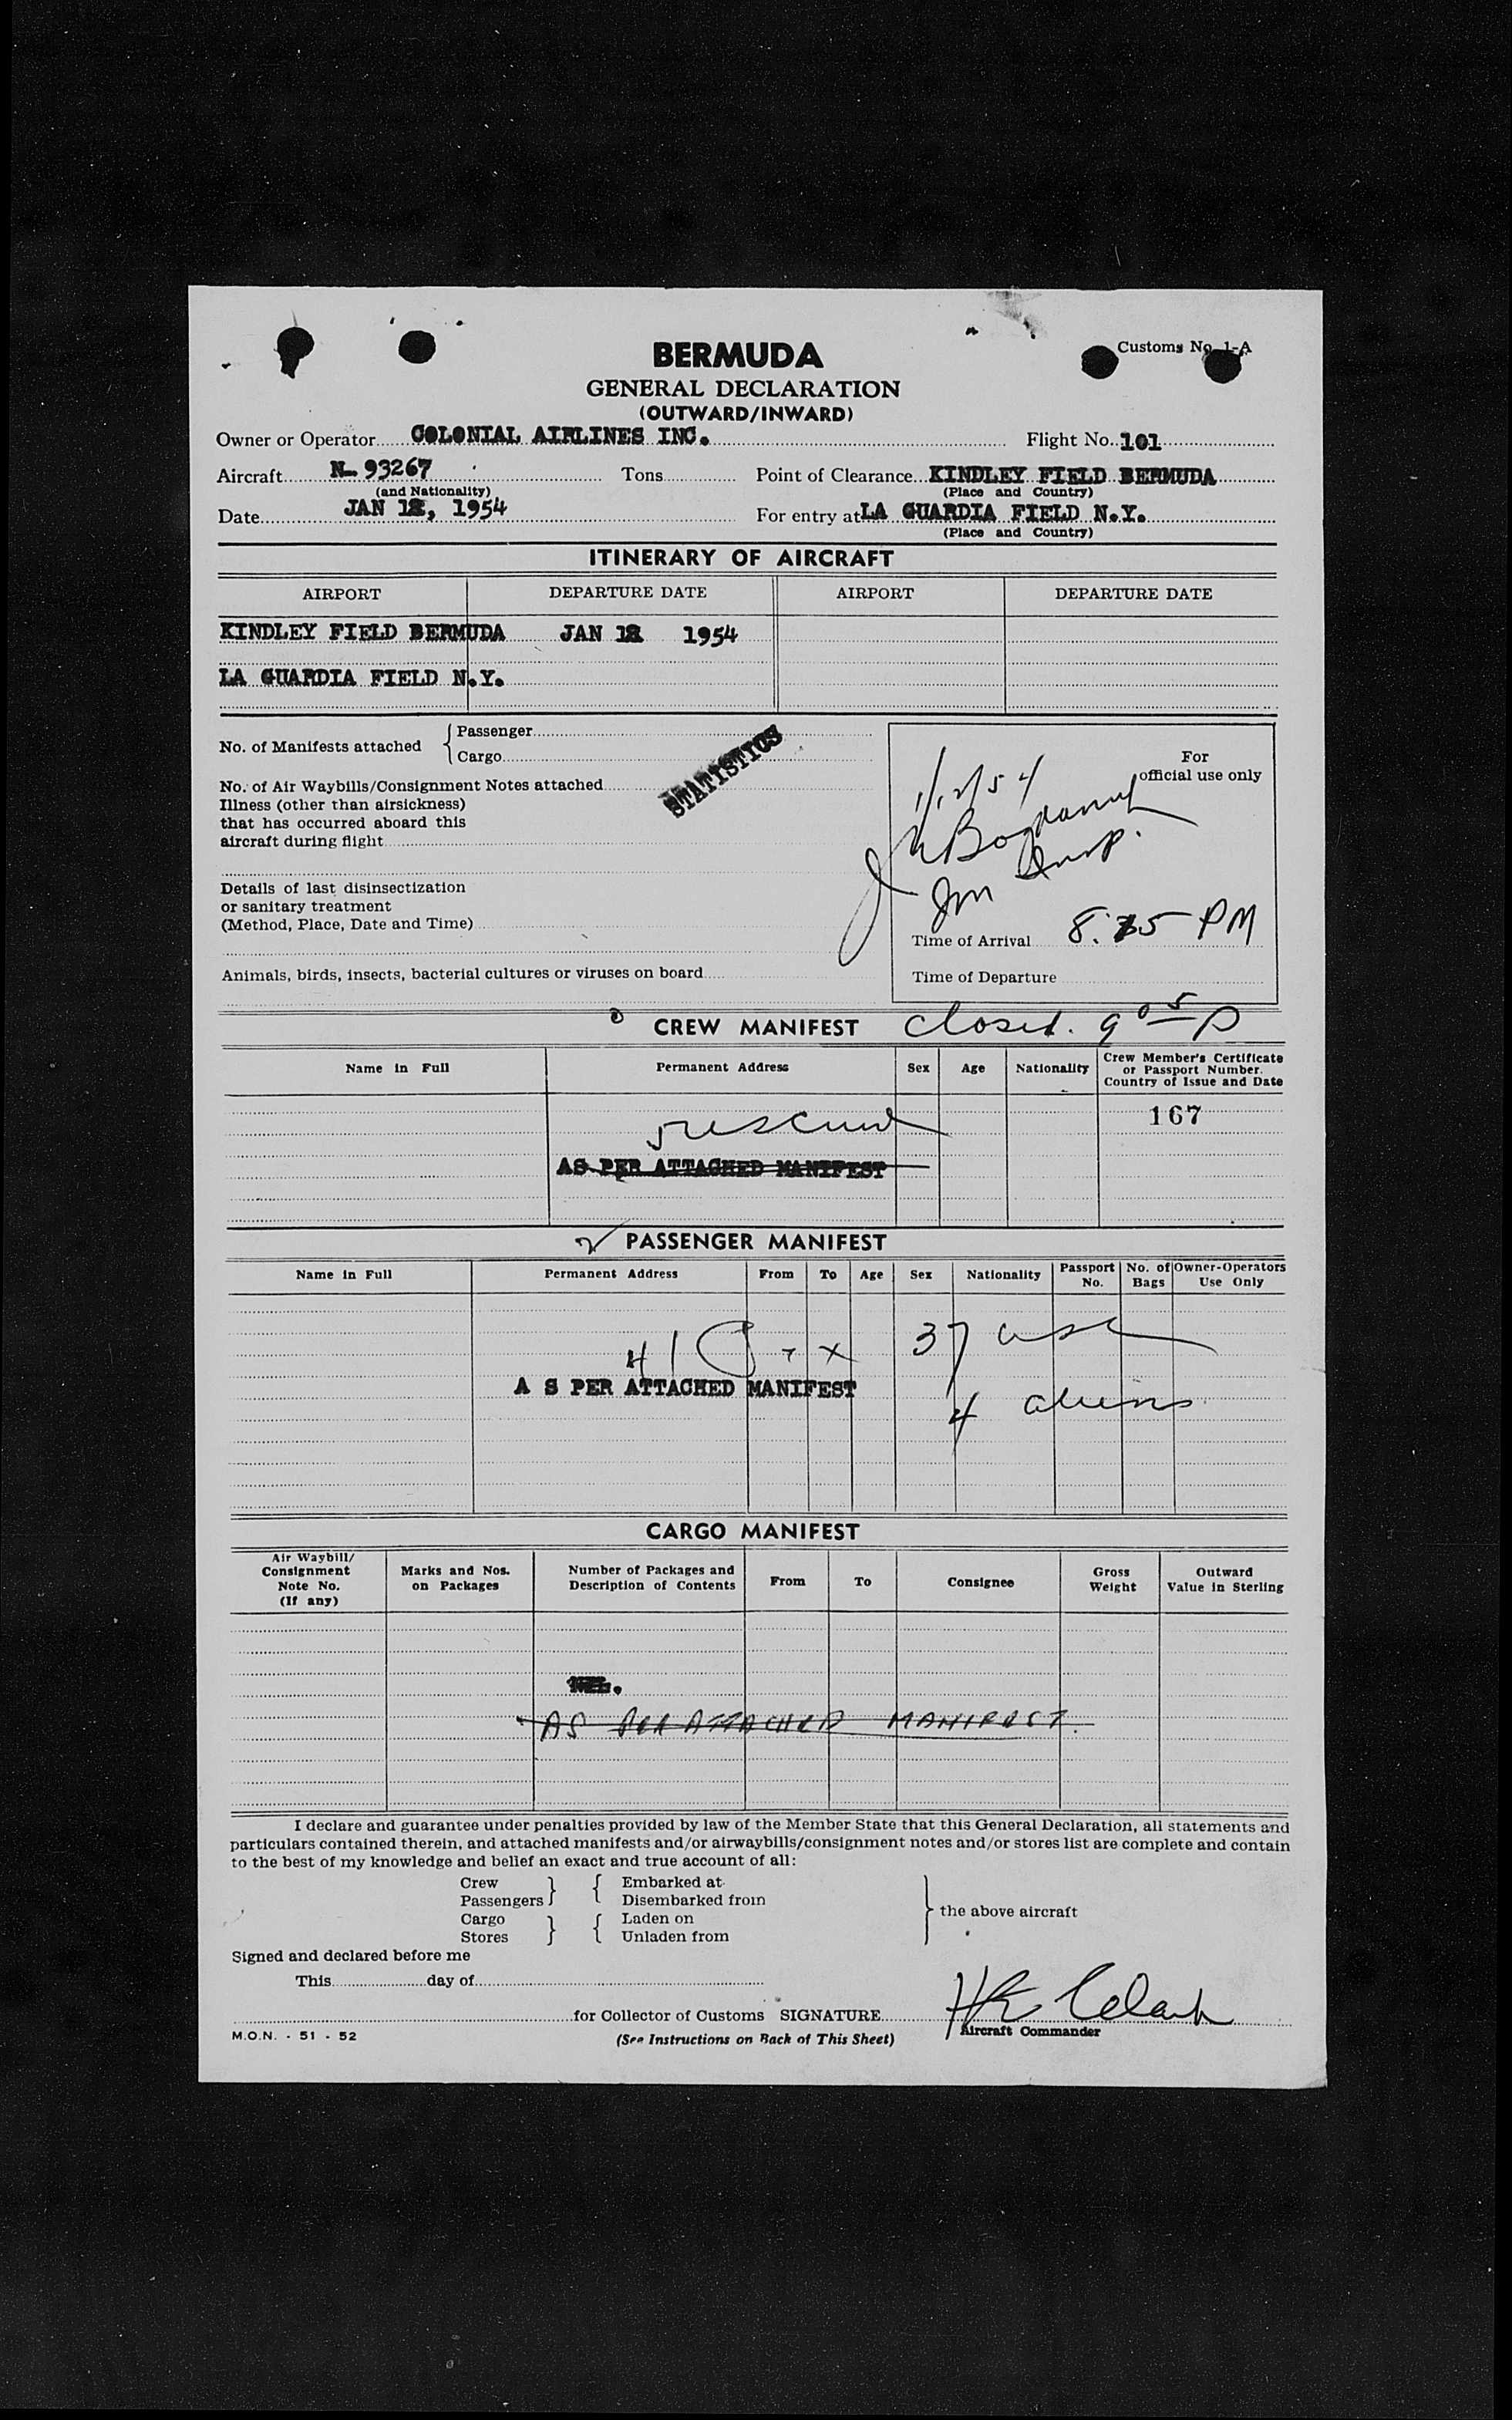 Customs No. 1-A
BERMUDA
GENERAL DECLARATION
(OUTWARD/INWARD)
Owner or Operator COLONIAL AIRLINES INC. Flight No. 101
Aircraft N- 93267 Tons Point of Clearance KINDLEY FIELD BERMUDA
(and Nationality) (Place and Country)
Date JAN 12, 1954 For entry at LA GUARDIA FIELD N.Y.
(Place and Country)
ITINERARY OF AIRCRAFT
AIRPORT DEPARTURE DATE AIRPORT DEPARTURE DATE
KINDLEY FIELD BERMUDA JAN 12 1954
LA GUARDIA FIELD N.Y.
No. of Manifests attached { Passenger
Cargo
STATISTICS
For
official use only
1/12/54
No. of Air Waybills/Consignment Notes attached
Illness (other than airsickness)
that has occurred aboard this
aircraft during flight
Insp.
Details of last disinsectization
or sanitary treatment
(Method, Place, Date and Time)
Time of Arrival 8:35 PM
Animals, birds, insects, bacterial cultures or viruses on board
Time of Departure
CREW MANIFEST closed. 9 05 P
Name in Full Permanent Address Sex Age Nationality Crew Member's Certificate
or Passport Number.
Country of Issue and Date
167
5 uscrew
AS PER ATTACHED MANIFEST
PASSENGER MANIFEST
Name in Full Permanent Address From To Age Sex Nationality Passport No. No. of Bags Owner-Operators Use Only
41 37 usc
A S PER ATTACHED MANIFEST
4 aliens
CARGO MANIFEST
Air Waybill/
Consignment
Note No.
(If any)
Marks and Nos.
on Packages
Number of Packages and
Description of Contents
From To Consignee
Gross
Weight
Outward
Value in Sterling
AS PER ATTACHED MANIFEST.
I declare and guarantee under penalties provided by law of the Member State that this General Declaration, all statements and
particulars contained therein, and attached manifests and/or airwaybills/consignment notes and/or stores list are complete and contain
to the best of my knowledge and belief an exact and true account of all:
Crew } { Embarked at
Passengers Disembarked from
} the above aircraft
Cargo } { Laden on
Stores Unladen from
Signed and declared before me
This day of
for Collector of Customs SIGNATURE
Aircraft Commander
M.O.N. - 51 - 52
(See Instructions on Back of This Sheet)